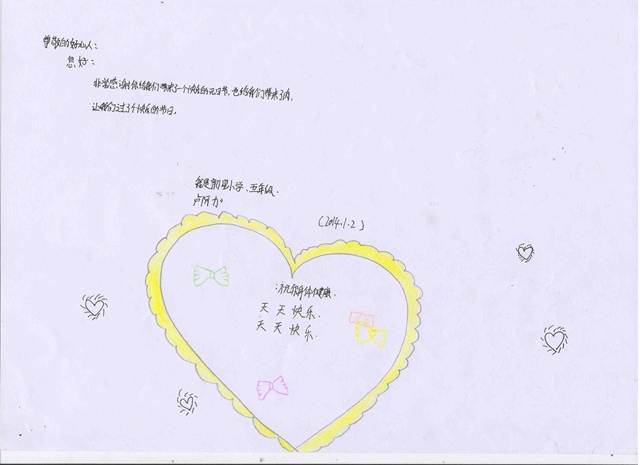 尊敬的好心人：
您好：
非常感谢你给我们带来了一个快乐的元旦节，也给我们带来了肉，
让我们过了个快乐的节日。
我是小学、五年级、
卢阿力。
(2014.1.2)
祝你身体健康、
天天快乐、
天天快乐.